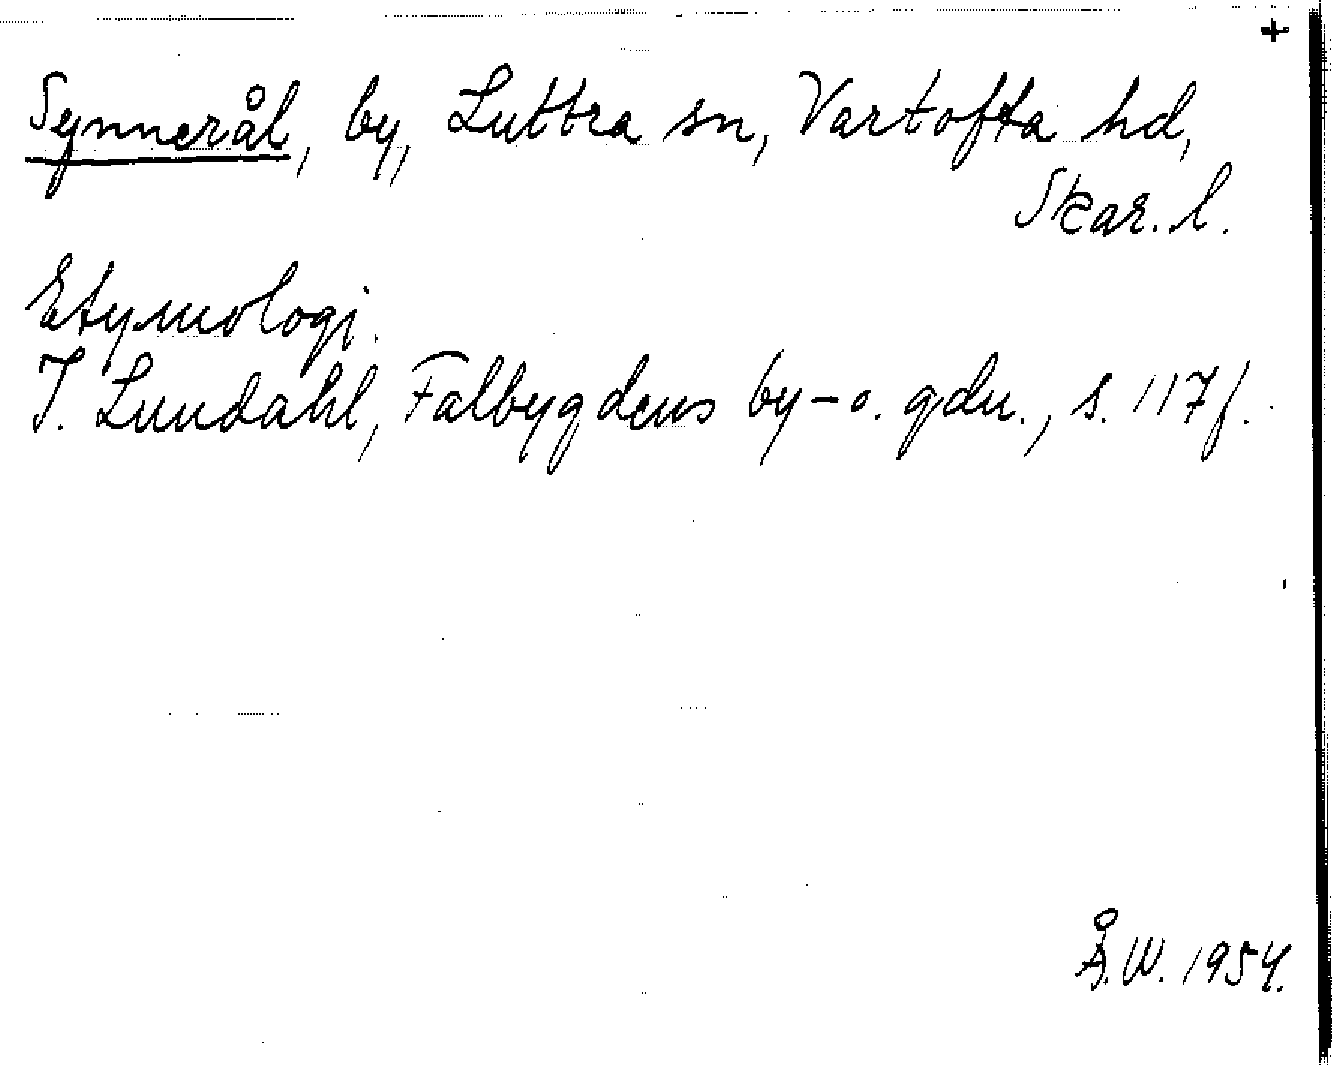 +
Synnerål, by, Luttra sn, Vartofta hd,
Skar. l.
Etymologi.
I. Lundahl, Falbygdens by- o. gdn., s. 117f.
Å.W. 1954.